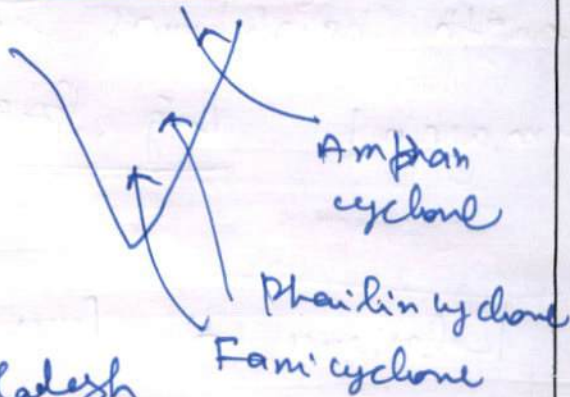 Amphan
cyclone
Phailin cyclone
Fani cyclone